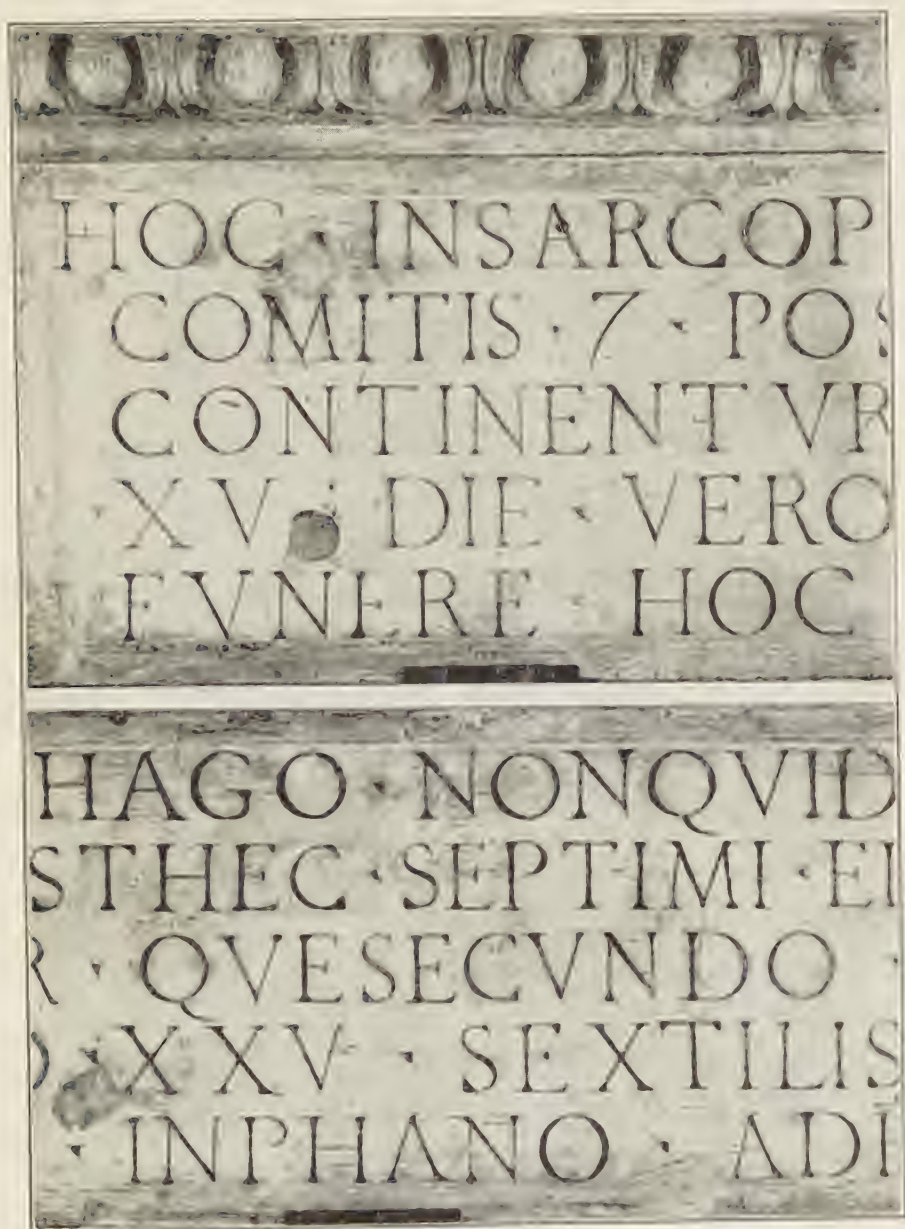 HOC · INSARCOP
COMITIS · 7 · POS
CONTINENTVR
· XV · DIE · VERO
FVNERE · HOC
HAGO · NONQVID
STHEC · SEPTIMI · EI
R · QVESECVNDO ·
O · XXV · SEXTILIS
· INPHANO · ADI